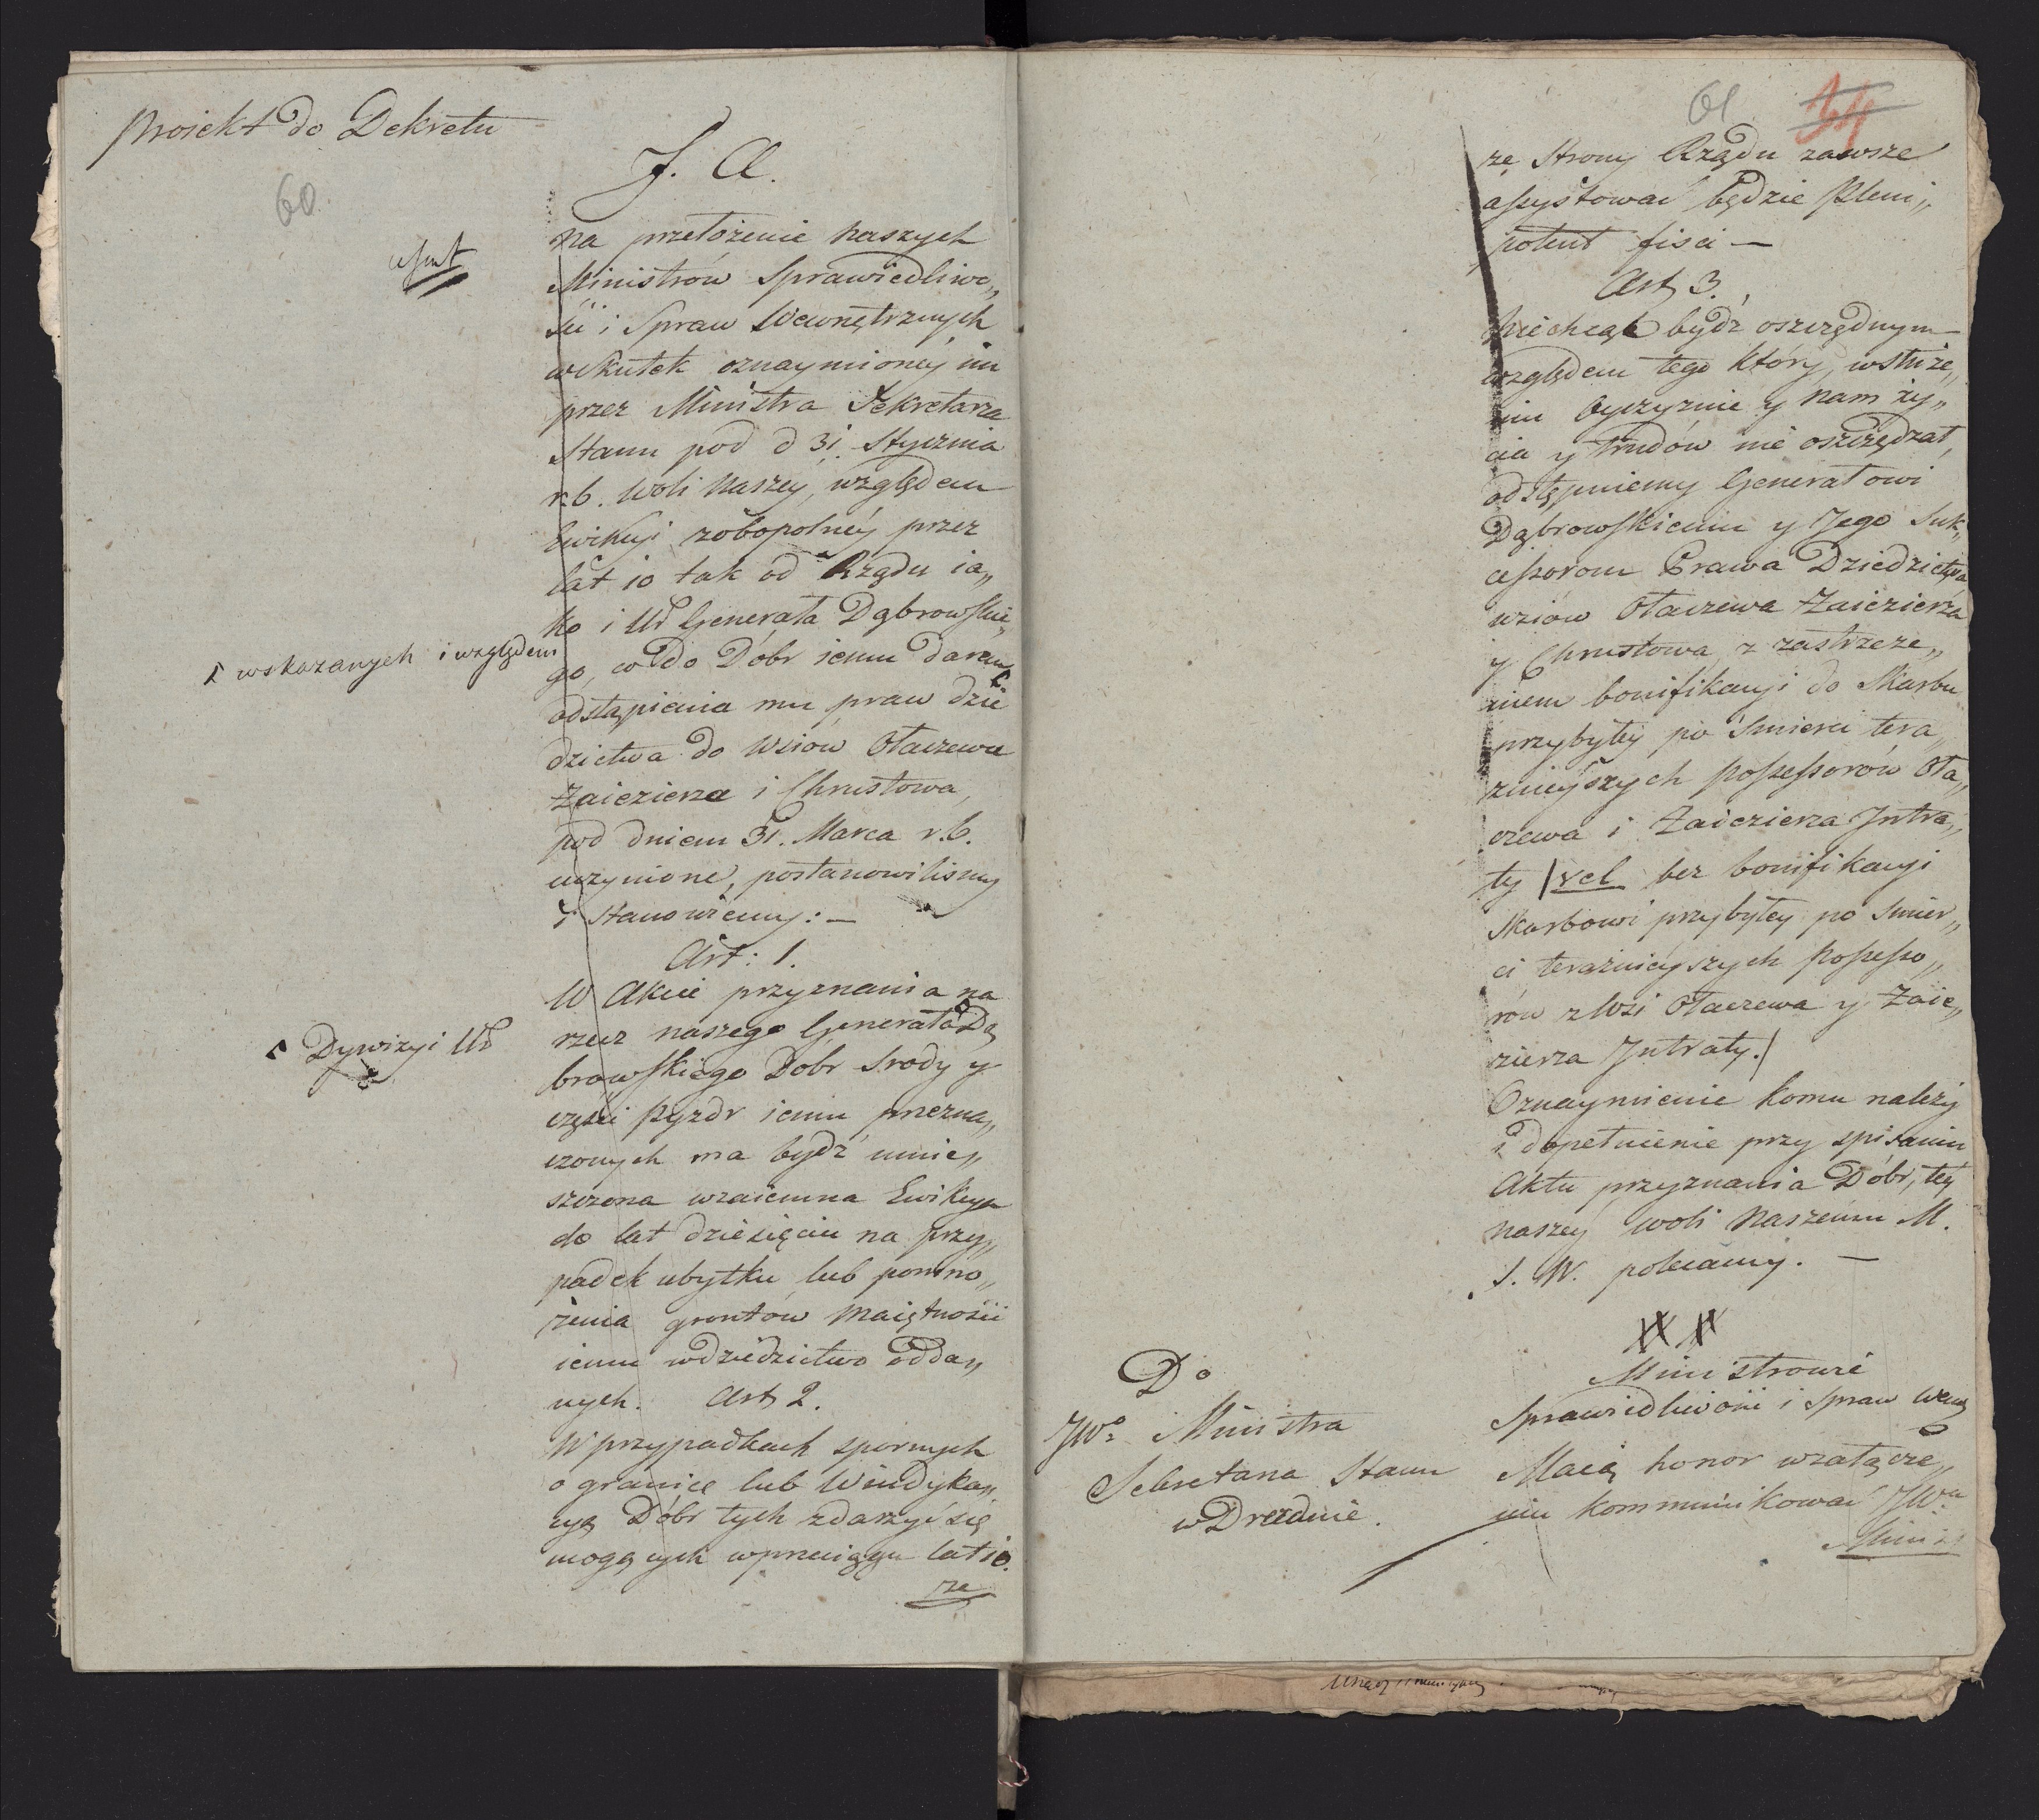 Proiekt do Dekretu
60.
F. A.
na przełożenie naszych
Ministrów Sprawiedliwo„
ści i Spraw Wewnętrznych
wskutek oznaymioney im
przez Ministra Sekretarza
Stanu pod d 31. Stycznia
r. b. woli Naszey, względem
Ewikcyi zobopolnéy przez
lat 10 tak od Rządu ia„
ko i Ur Generała Dąbrowskie„
go, co do Dóbr iemu darem
⌈ wskazanych i względem
odstąpienia mu praw dzie
dzictwa do Wsiow Otaczewa
Zaiezierza i Chrustowa,
pod dniem 31. Marca r. b.
uczynione, postanowilismy
i Stanowiemy: —
Art: 1.
W Akcie przyznania na
rzecz naszego Generała Dą
⌈ Dywizyi Ur
browskiego Dobr Srody y
części Pyzdr iemu przezna„
czonych ma bydź umie„
szczona wzaiemna Ewikcya
do lat dziesięciu na przy„
padek ubytku lub pomno„
żenia grontów Maiętności
iemu wdziedzictwo odda„
nych. Art 2.
W przypadkach spornych
o granice lub Windyka„
cyą Dóbr tych zdarzyć się
mogących wprzeciągu lat 10.
ze
61
34
ze Strony Rządu zawsze
assystować będzie Pleni„
potent fisci —
Art 3.
Niechcąc bydź oszczędnym
względem tego który, wsłuże„
niu Oyczyznie y Nam ży„
cia y trudów nie oszczędzał,
odstępuiemy Generałowi
Dąbrowskiemu y Jego Suk„
cessorom Prawa Dziedzictwa
wsiow Otaczewa Zaiezierza
y Chrustowa, z zastrzeże„
niem bonifikacyi do Skarbu
przybyłéy po Smierci tera„
znieyszych possessorów Ota„
czewa i Zaiezierza Intra„
ty /vel bez bonifikacyi
Skarbowi przybyłey po Smier„
ci teraznieyszych Possesso„
rów z Wsi Otaczewa y Zaie„
zierza Intraty./
Oznaymienie komu należy
i dopełnienie przy spisaniu
Aktu przyznania Dóbr, tey
naszéy woli Naszemu M.
S. W. polecamy. —
Ministrowie
Sprawiedliwości i Spraw Wew
Maią honor wzałącze„
niu kommunikować JWu
Minis
Do
JWo Ministra
Sekretarza Stanu
w Dreznie.